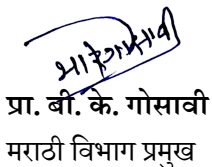 प्रा. बी. के. गोसावी
मराठी विभाग प्रमुख